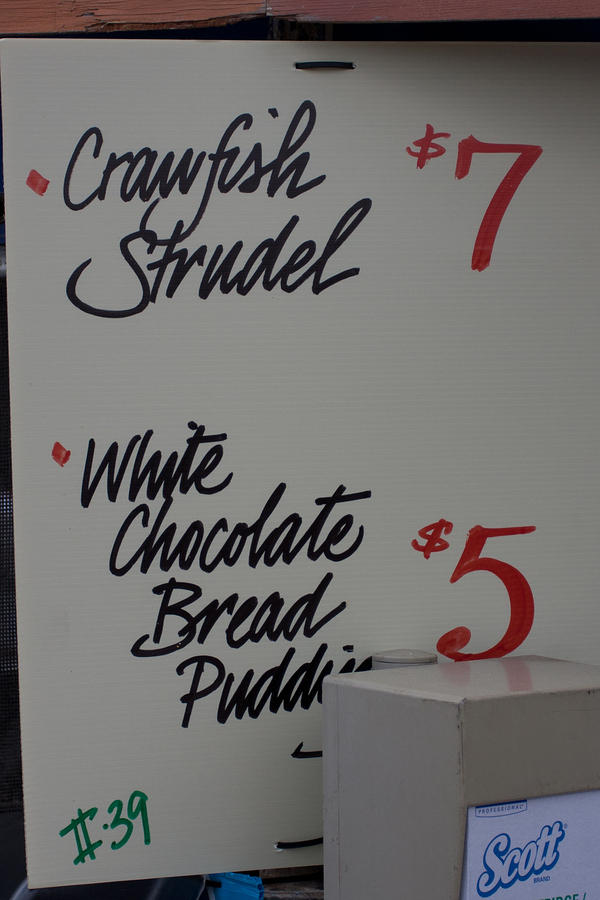 Crawfish $7
Strudel
White
Chocolate $5
Bread
Puddin
#.39
PROFESSIONAL
Scott
BRAND